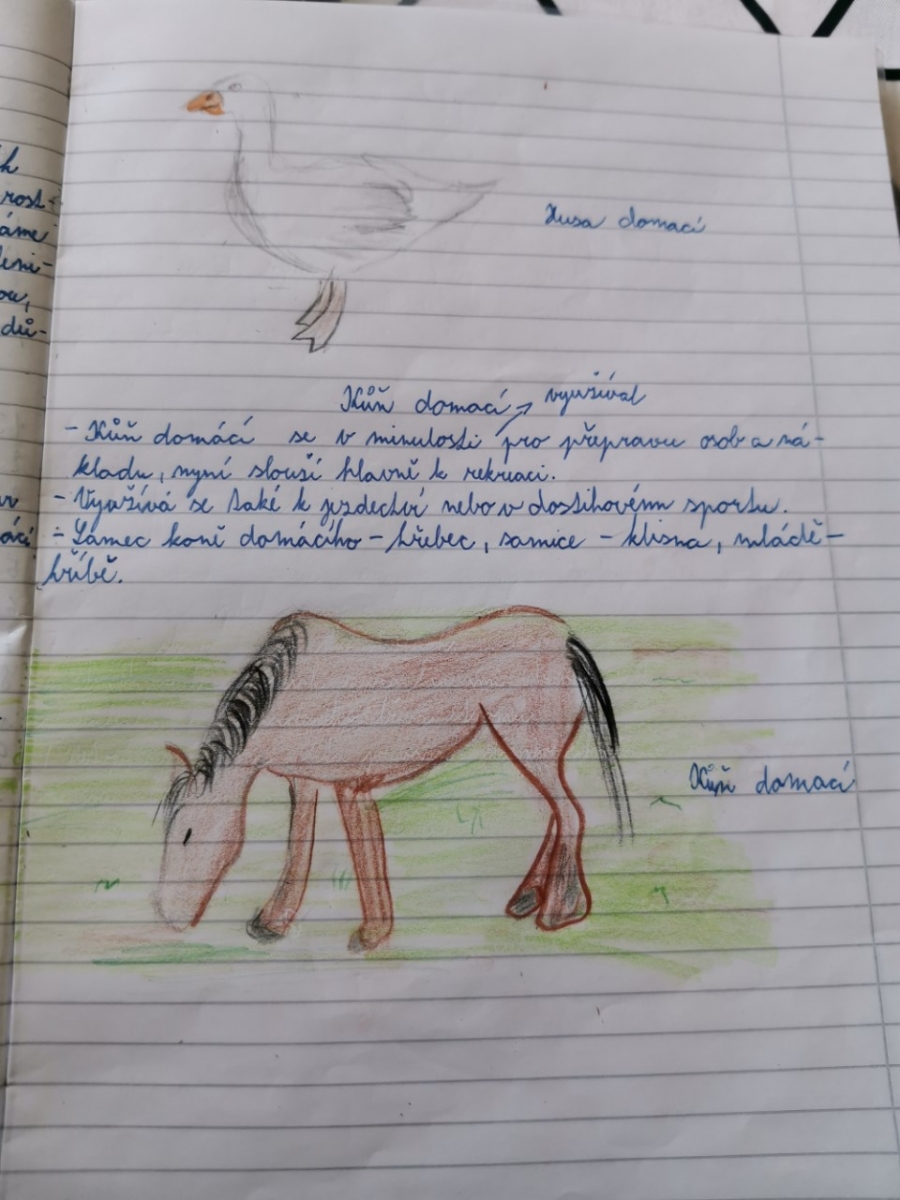 h
rost-
áme
leni-
ou,
dů-
Husa domací
Kůň domací využíval
- Kůň domácí se v minulosti pro přepravu osob a ná-
kladu, nyní slouší hlavně k rekreaci.
- Využívá se také k jezdectví nebo v dostihovém sportu.
- Samec koně domácího - hřebec, samice - klisna, mládě -
ácí
hříbě.
Kůň domací